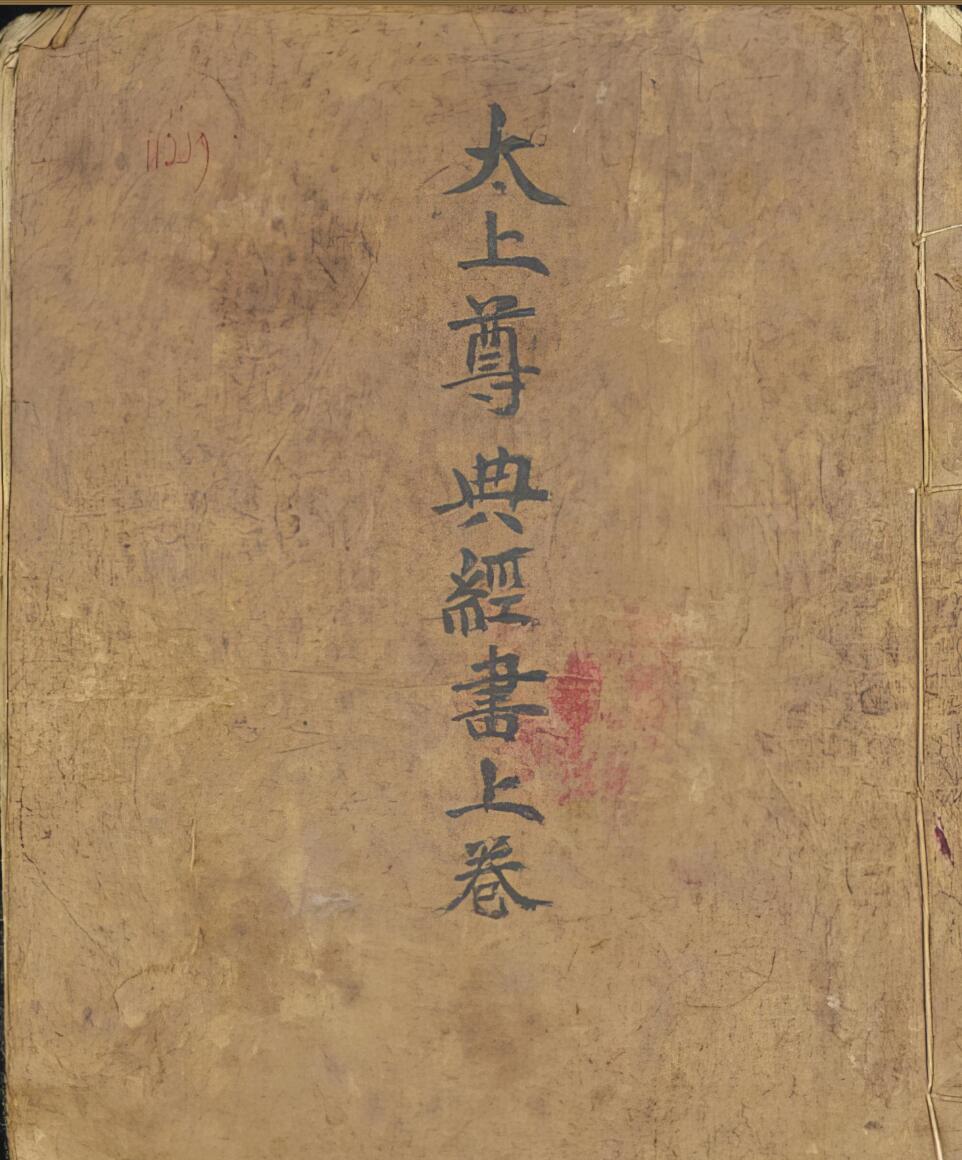 太上尊典經書上卷